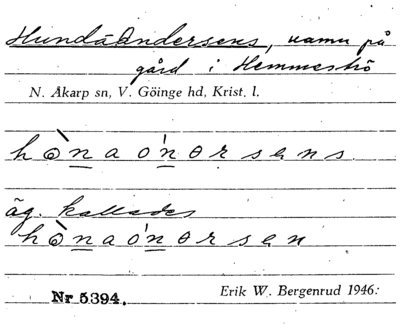 Hundåandersens, namn på
gård i Hemmeshö
N. Åkarp sn, V. Göinge hd, Krist. l.
hònaónɵrsens
äg. kallades
hònaónɵrsen
Nr 5394. Erik W. Bergenrud 1946.